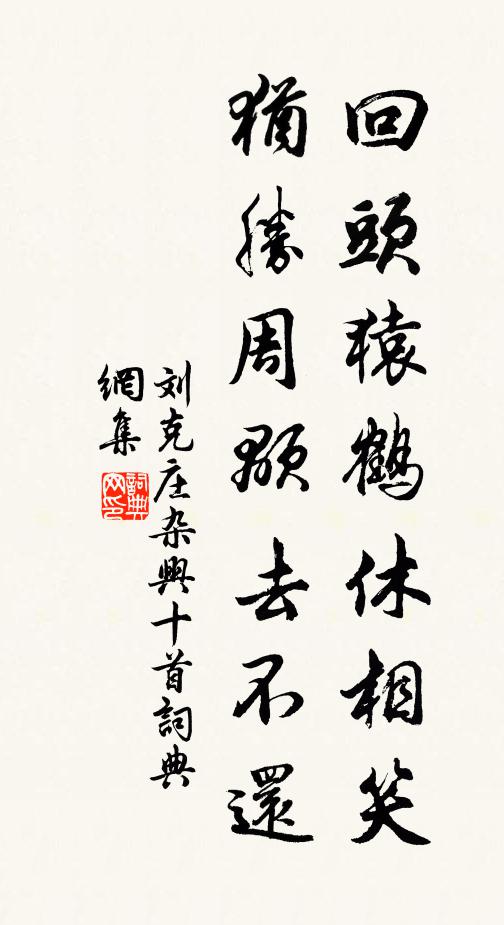 回頭猿鶴休相笑
猶勝周顒去不還
刘克庄杂興十首詞典
網集
詞典网印